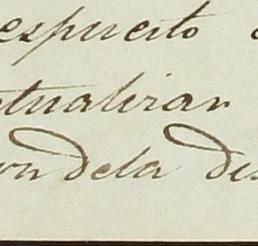 espuesto
ctualizar
on dela des